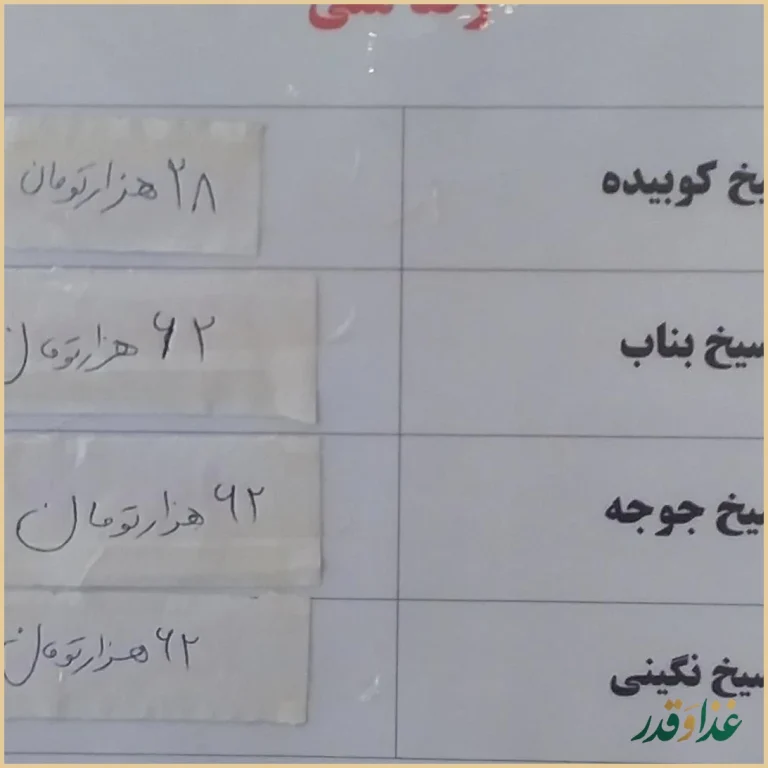 یخ کوبیده ۲۸ هزارتومان
سیخ بناب ۶۲ هزارتومان
یخ جوجه ۶۲ هزارتومان
سیخ نگینی ۶۲ هزارتومان
غذا و قدر